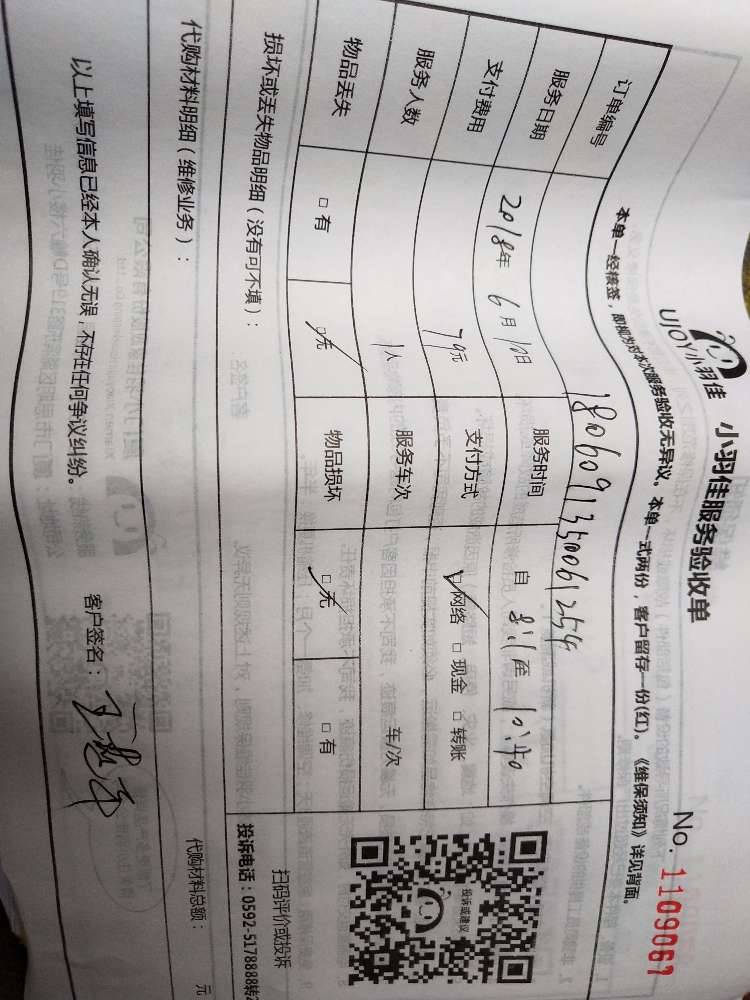 UJOY小羽佳 小羽佳服务验收单 No. 1109067
本单一经核签，即视为对本次服务验收无异议。本单一式两份，客户留存一份(红)。《维保须知》详见背面。
订单编号
服务日期 2018年 6月10日 服务时间 自 至
支付费用 79元 支付方式 □网络 □现金 □转账
服务人数 1人 服务车次 车/次
物品丢失 □有 □无 物品损坏 □无 □有
损坏或丢失物品明细（没有可不填）：
代购材料明细（维修业务）：
代购材料总额： 元
投诉或建议
扫码评价或投诉
投诉电话：0592-5178888转
以上填写信息已经本人确认无误，不存在任何争议纠纷。 客户签名：